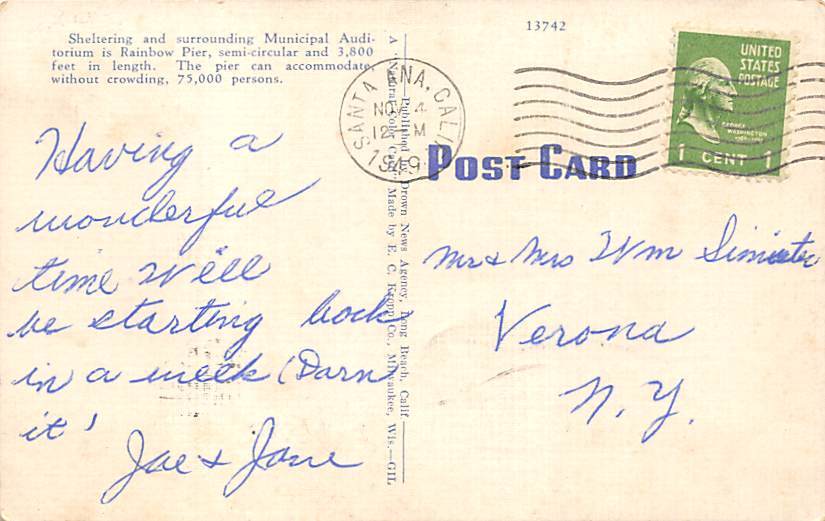 13742
Sheltering and surrounding Municipal Audi-
torium is Rainbow Pier, semi-circular and 3,800
feet in length. The pier can accommodate,
without crowding, 75,000 persons.
Having a
wonderful
time Will
be starting back
in a week (Darn
it'
Joe & Jane
A "Natural Color Card" Made by E. C. Kropp Co., Milwaukee, Wis.—GIL
Published by Drown News Agency, Long Beach, Calif.
SANTA ANA, CALIF.
NOV 4
12 M
1949
UNITED
STATES
POSTAGE
GEORGE
WASHINGTON
1 CENT 1
POST CARD
Mr & Mrs Wm
Verona
N. Y.